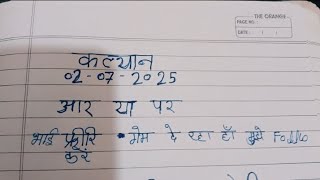 THE ORANGE
PAGE NO.:
DATE:
कल्यान
02-07-2025
आर या पर
भाई फ्रीरि • गेम दे रहा हाँ मुझे Follow
करें